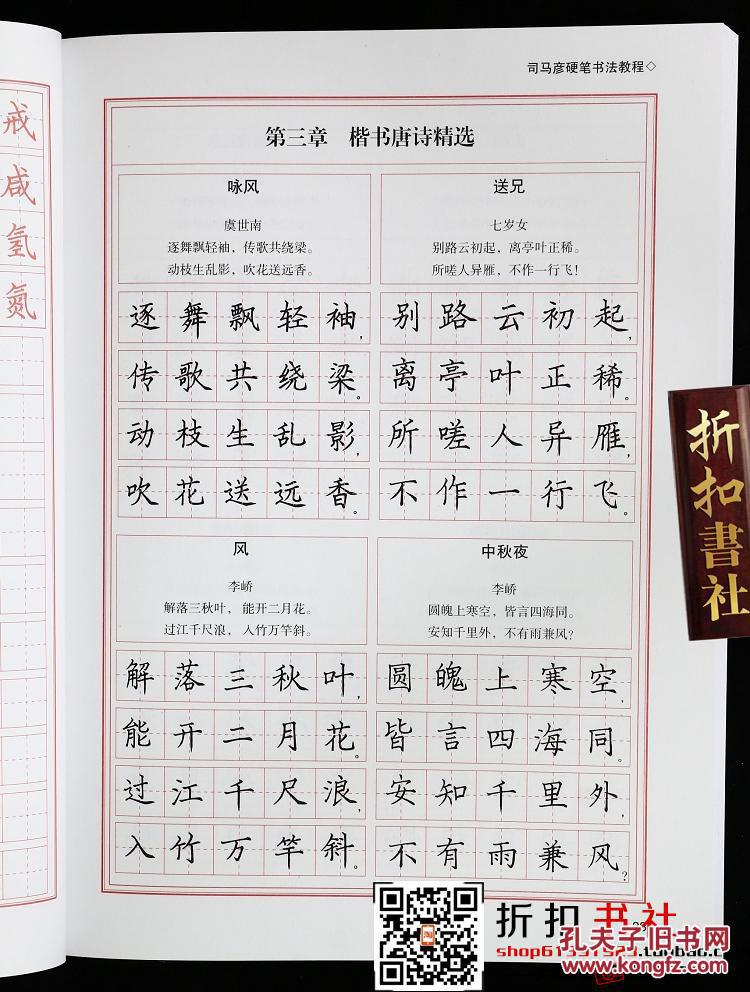 戒
咸
氢
氮
司马彦硬笔书法教程◇
第三章 楷书唐诗精选
咏风
虞世南
逐舞飘轻袖，传歌共绕梁。
动枝生乱影，吹花送远香。
逐舞飘轻袖，
传歌共绕梁。
动枝生乱影，
吹花送远香。
送兄
七岁女
别路云初起，离亭叶正稀。
所嗟人异雁，不作一行飞！
别路云初起，
离亭叶正稀。
所嗟人异雁，
不作一行飞。
风
李峤
解落三秋叶，能开二月花。
过江千尺浪，入竹万竿斜。
解落三秋叶，
能开二月花。
过江千尺浪，
入竹万竿斜。
中秋夜
李峤
圆魄上寒空，皆言四海同。
安知千里外，不有雨兼风？
圆魄上寒空，
皆言四海同。
安知千里外，
不有雨兼风？
折扣書社
淘
折扣书社
孔夫子旧书网
www.kongfz.com